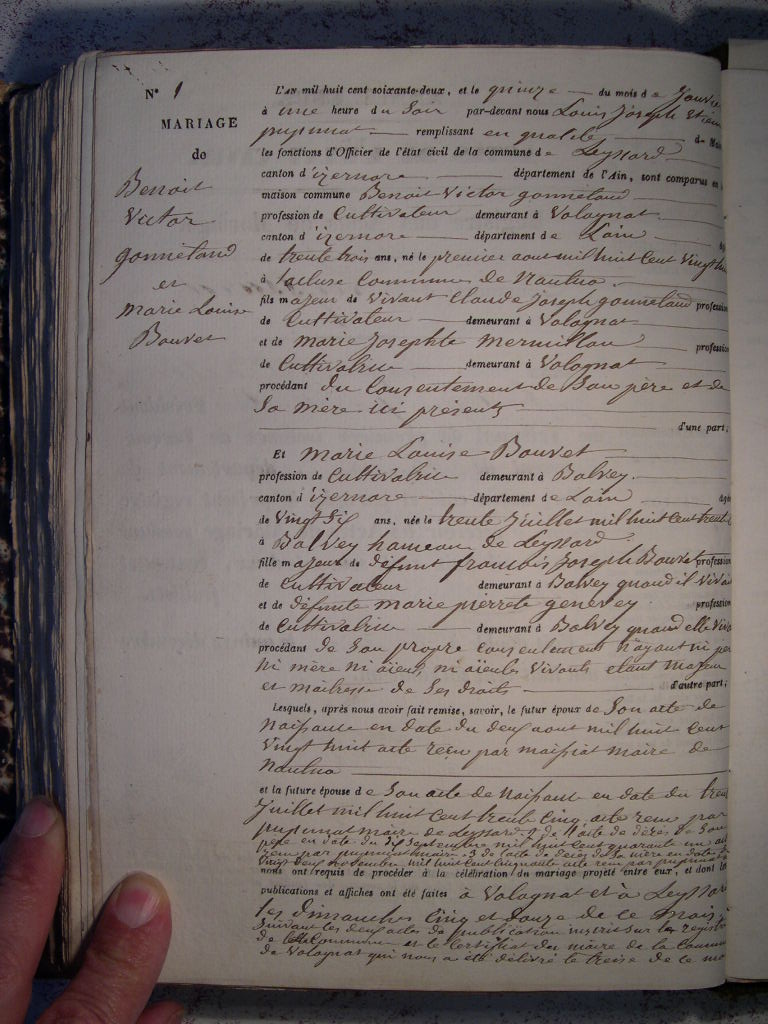 N° 1
MARIAGE
de
Benoit
Victor
gonnetand
et
marie Louise
Bouvet
L'AN mil huit cent soixante-deux, et le quinze du mois de Janvier
à une heure du Soir par-devant nous Louis Joseph
pupunat remplissant en qualité de
les fonctions d'Officier de l'état civil de la commune de Leyssard
canton d'izernore département de l'Ain, sont comparus en la
maison commune Benoit Victor gonnetand
profession de Cultivateur demeurant à Volognat
canton d'izernore département de Lain
de trente trois ans, né le premier aout mil huit cent vingt huit
à Lacluse Commune de Nantua
fils majeur de vivant Claude Joseph gonnetand profession
de Cultivateur demeurant à Volognat
et de marie Josephte mermillon profession
de Cultivatrice demeurant à Volognat
procédant du Consentement de Son père et de
Sa mère ici présents
d'une part;
Et marie Louise Bouvet
profession de Cultivatrice demeurant à Balvey
canton d'izernore département de Lain âgée
de vingt Six ans, née le trente Juillet mil huit Cent trente
à Balvey hameau de Leyssard
fille majeur de défunt francois Joseph Bouvet profession
de Cultivateur demeurant à Balvey quand il vivait
et de défunte marie pierrete genevey profession
de Cultivatrice demeurant à Balvey quand elle vivait
procédant de Son propre consentement n'ayant ni père
ni mère ni aïeux, ni aïeules vivants etant majeur
et maitresse de Ses droits d'autre part;
Lesquels, après nous avoir fait remise, savoir, le futur époux de Son acte de
naissance en date du deux aout mil huit Cent
vingt huit acte reçu par maissiat maire de
Nantua
et la future épouse de Son acte de naissance en date du trente
Juillet mil huit Cent trente Cinq acte reçu par
pupunat maire de Leyssard 2° de l'acte de décès de Son
père en date du dix Septembre mil huit Cent quarante un acte
reçu par pupunat maire 3° de l'acte de décès de Sa mère en date du
vingt deux novembre mil huit Cent Cinquante acte reçu par pupunat
nous ont requis de procéder à la célébration du mariage projeté entre eux, et dont les
publications et affiches ont été faites à Volognat et à Leyssard
les dimanches Cinq et douze de Ce mois
Suivant les deux actes de publication inscrit Sur les registres
de Commune et le Certificat du maire de la Commune
de Volognat qui nous a été délivré le treize de Ce mois